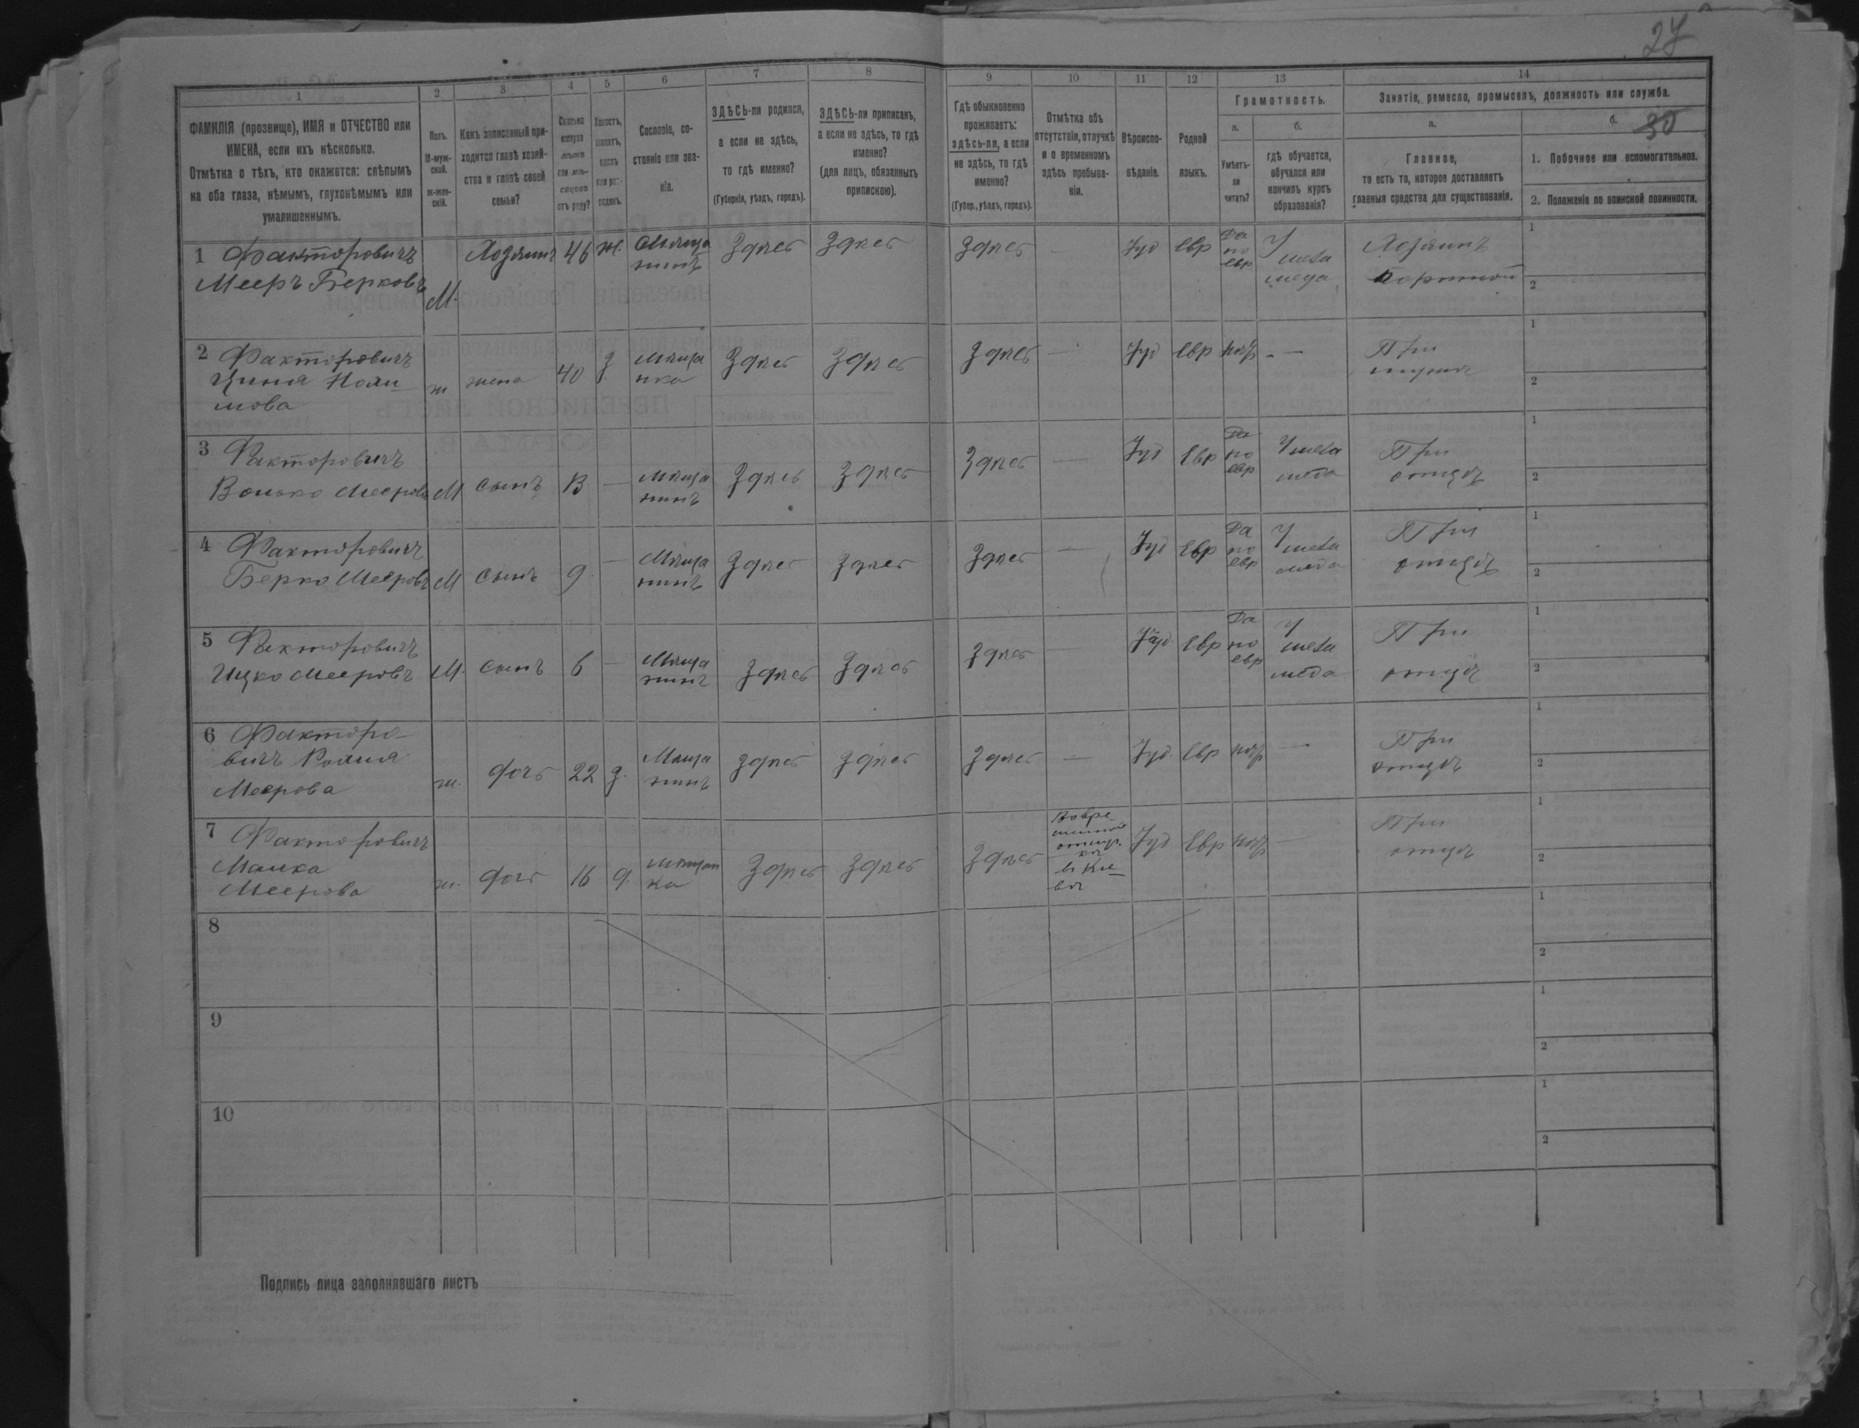 27
30
1 2 3 4 5 6 7 8 9 10 11 12 13 14
ФАМИЛІЯ (прозвище), ИМЯ и ОТЧЕСТВО или
ИМЕНА, если ихъ нѣсколько.
Отмѣтка о тѣхъ, кто окажется: слѣпымъ
на оба глаза, нѣмымъ, глухонѣмымъ или
умалишеннымъ.
Полъ.
М-муж-
ской.
ж-жен-
скій.
Какъ записанный при-
ходится главѣ хозяй-
ства и главѣ своей
семьи?
Сколько
минуло
лѣтъ
или мѣ-
сяцевъ
отъ роду?
Сословіе, со-
стояніе или зва-
ніе.
ЗДѢСЬ-ли родился,
а если не здѣсь,
то гдѣ именно?
(Губернія, уѣздъ, городъ).
ЗДѢСЬ-ли приписанъ,
а если не здѣсь, то гдѣ
именно?
(для лицъ, обязанныхъ
припискою).
Гдѣ обыкновенно
проживаетъ:
здѣсь-ли, а если
не здѣсь, то гдѣ
именно?
(Губер., уѣздъ, городъ).
Отмѣтка объ
отсутствіи, отлучкѣ
и о временномъ
здѣсь пребыва-
ніи.
Вѣроиспо-
вѣданіе.
Родной
языкъ.
Грамотность.
а.
Умѣетъ-
ли
читать?
б.
гдѣ обучается,
обучался или
кончилъ курсъ
образованія?
Занятіе, ремесло, промыселъ, должность или служба.
а.
Главное,
то есть то, которое доставляетъ
главныя средства для существованія.
б.
1. Побочное или вспомогательное.
2. Положеніе по воинской повинности.
1 Факторовичъ
Мееръ Берковъ
М. Хозяинъ 46 ж. Мѣща
нинъ Здѣсь Здѣсь Здѣсь — Іуд Евр Да
по
евр У
мела
меда Хозяинъ
портной
1
2
2 Факторовичъ
мова
ж жена 40 з. мѣща
нка Здѣсь Здѣсь Здѣсь — Іуд Евр нѣтъ — При
мужѣ
1
2
3 Факторовичъ
Волько Мееровъ
М сынъ 13 — мѣща
нинъ Здѣсь Здѣсь Здѣсь — Іуд Евр Да
по
евр У мела
меда При
отцѣ
1
2
4 Факторовичъ
Берко Мееровъ
М сынъ 9 — Мѣща
нинъ Здѣсь Здѣсь Здѣсь — Іуд Евр Да
по
евр У
мела
меда При
отцѣ
1
2
5 Факторовичъ
Ицко Мееровъ
М. сынъ 6 — Мѣща
нинъ Здѣсь Здѣсь Здѣсь — Іуд Евр Да
по
евр У
мела
меда При
отцѣ
1
2
6 Факторо-
вичъ
Меерова
ж. дочь 22 д. Мѣща
нинъ Здѣсь Здѣсь Здѣсь — Іуд Евр нѣтъ — При
отцѣ
1
2
7 Факторовичъ
Малка
Меерова
ж. дочь 16 д. мѣщан
ка Здѣсь Здѣсь Здѣсь Во вре
менной
отлуч
кѣ
въ Кіе
вѣ Іуд Евр нѣтъ — При
отцѣ
1
2
8
1
2
9
1
2
10
1
2
Подпись лица заполнявшаго листъ